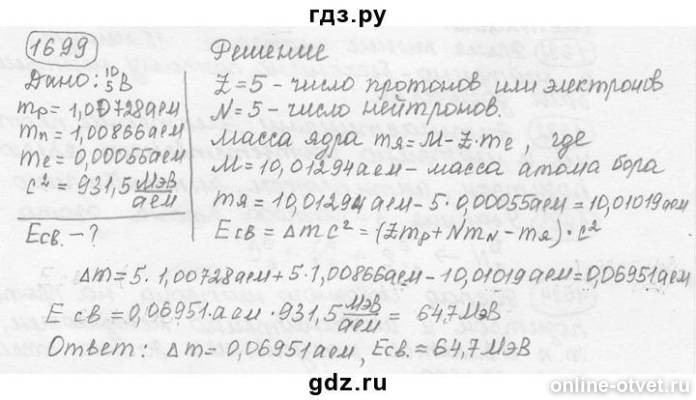 гдз.ру
1699
Решение
Дано: ¹⁰₅В
mp=1,00728аем
mn=1,00866аем
me=0,00055аем
c²=931,5 МэВ/аем
Eсв.-?
Z=5-число протонов или электронов
N=5-число нейтронов.
масса ядра mя=M-Z·me, где
M=10,01294аем-масса атома бора
mя=10,01294аем-5·0,00055аем=10,01019аем
Eсв=Δmc²=(Zmp+Nmn-mя)·c²
Δm=5·1,00728аем+5·1,00866аем-10,01019аем=0,06951аем
Eсв.=0,06951·аем·931,5 МэВ/аем = 64,7МэВ
Ответ: Δm=0,06951аем, Eсв.=64,7МэВ
gdz.ru
online-otvet.ru